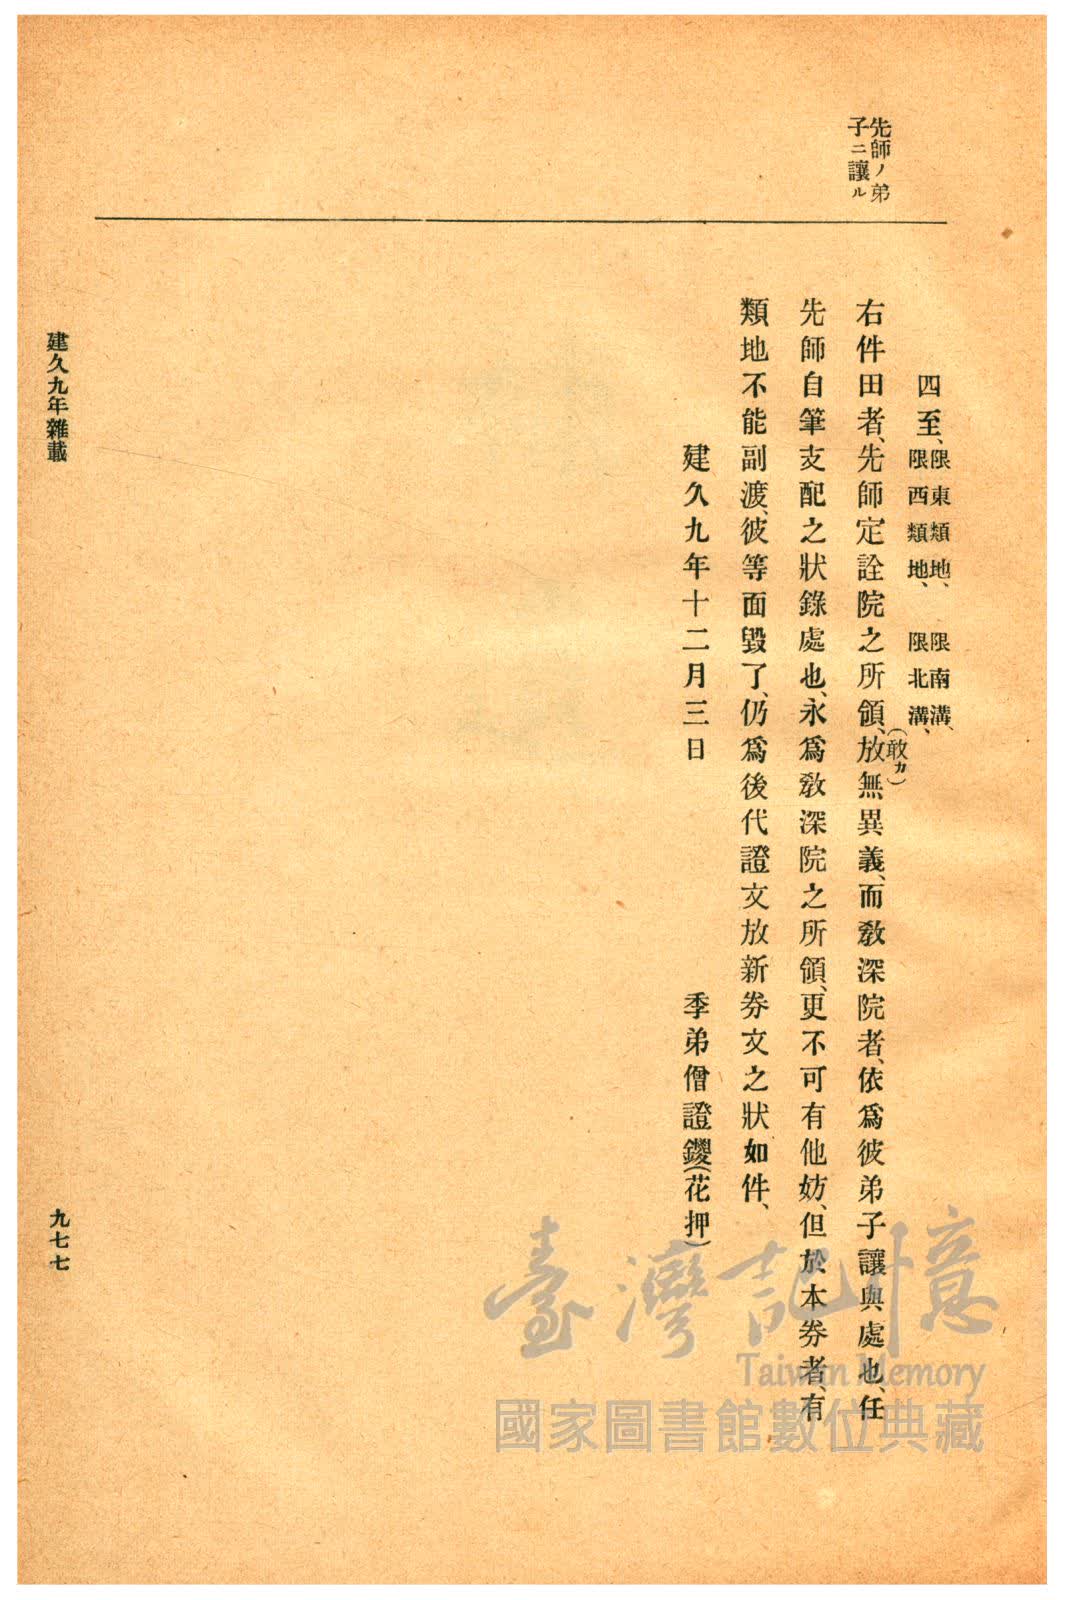 先師ノ弟
子ニ讓ル
四至、限東類地、限南溝、
限西類地、限北溝、
右件田者、先師定詮院之所領、放(敢カ)無異義、而敎深院者、依爲彼弟子讓與處也、任
先師自筆支配之狀錄處也、永爲敎深院之所領、更不可有他妨、但於本券者、有
類地不能副渡、彼等面毀了、仍爲後代證文放新券文之狀如件、
建久九年十二月三日
季弟僧證鑁(花押)
建久九年雜載
九七七
臺灣記憶
Taiwan Memory
國家圖書館數位典藏